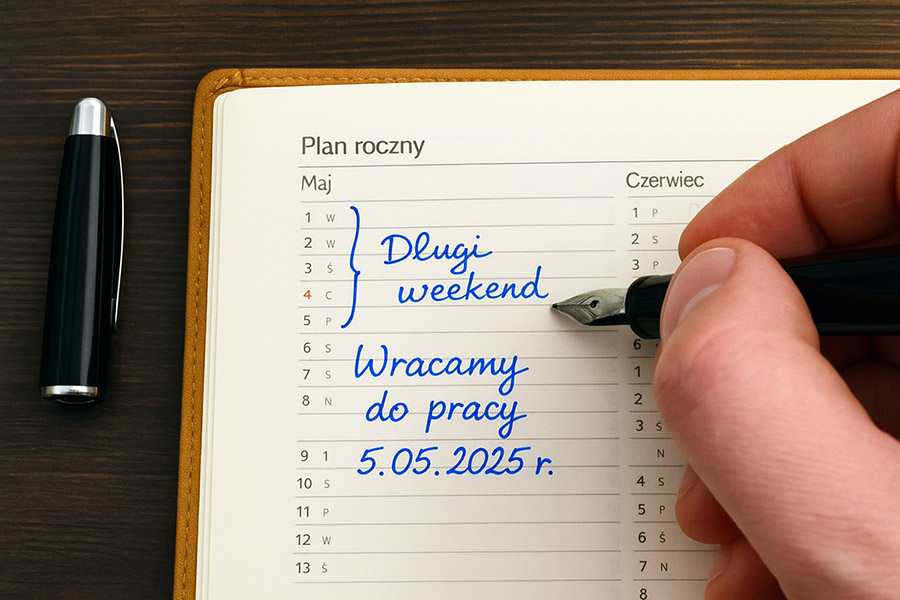 Plan roczny
Maj
1 W
2 W
3 Ś
4 C
5 P
6 S
7 S
8 N
9 1
10 S
11 P
12 W
13 Ś
Długi
weekend
Wracamy
do pracy
5.05.2025 r.
Czerwiec
1 P
2 S
3 P
6
1
2
3 Ś
N
4 S
5 P
6 Ś
7 N
8